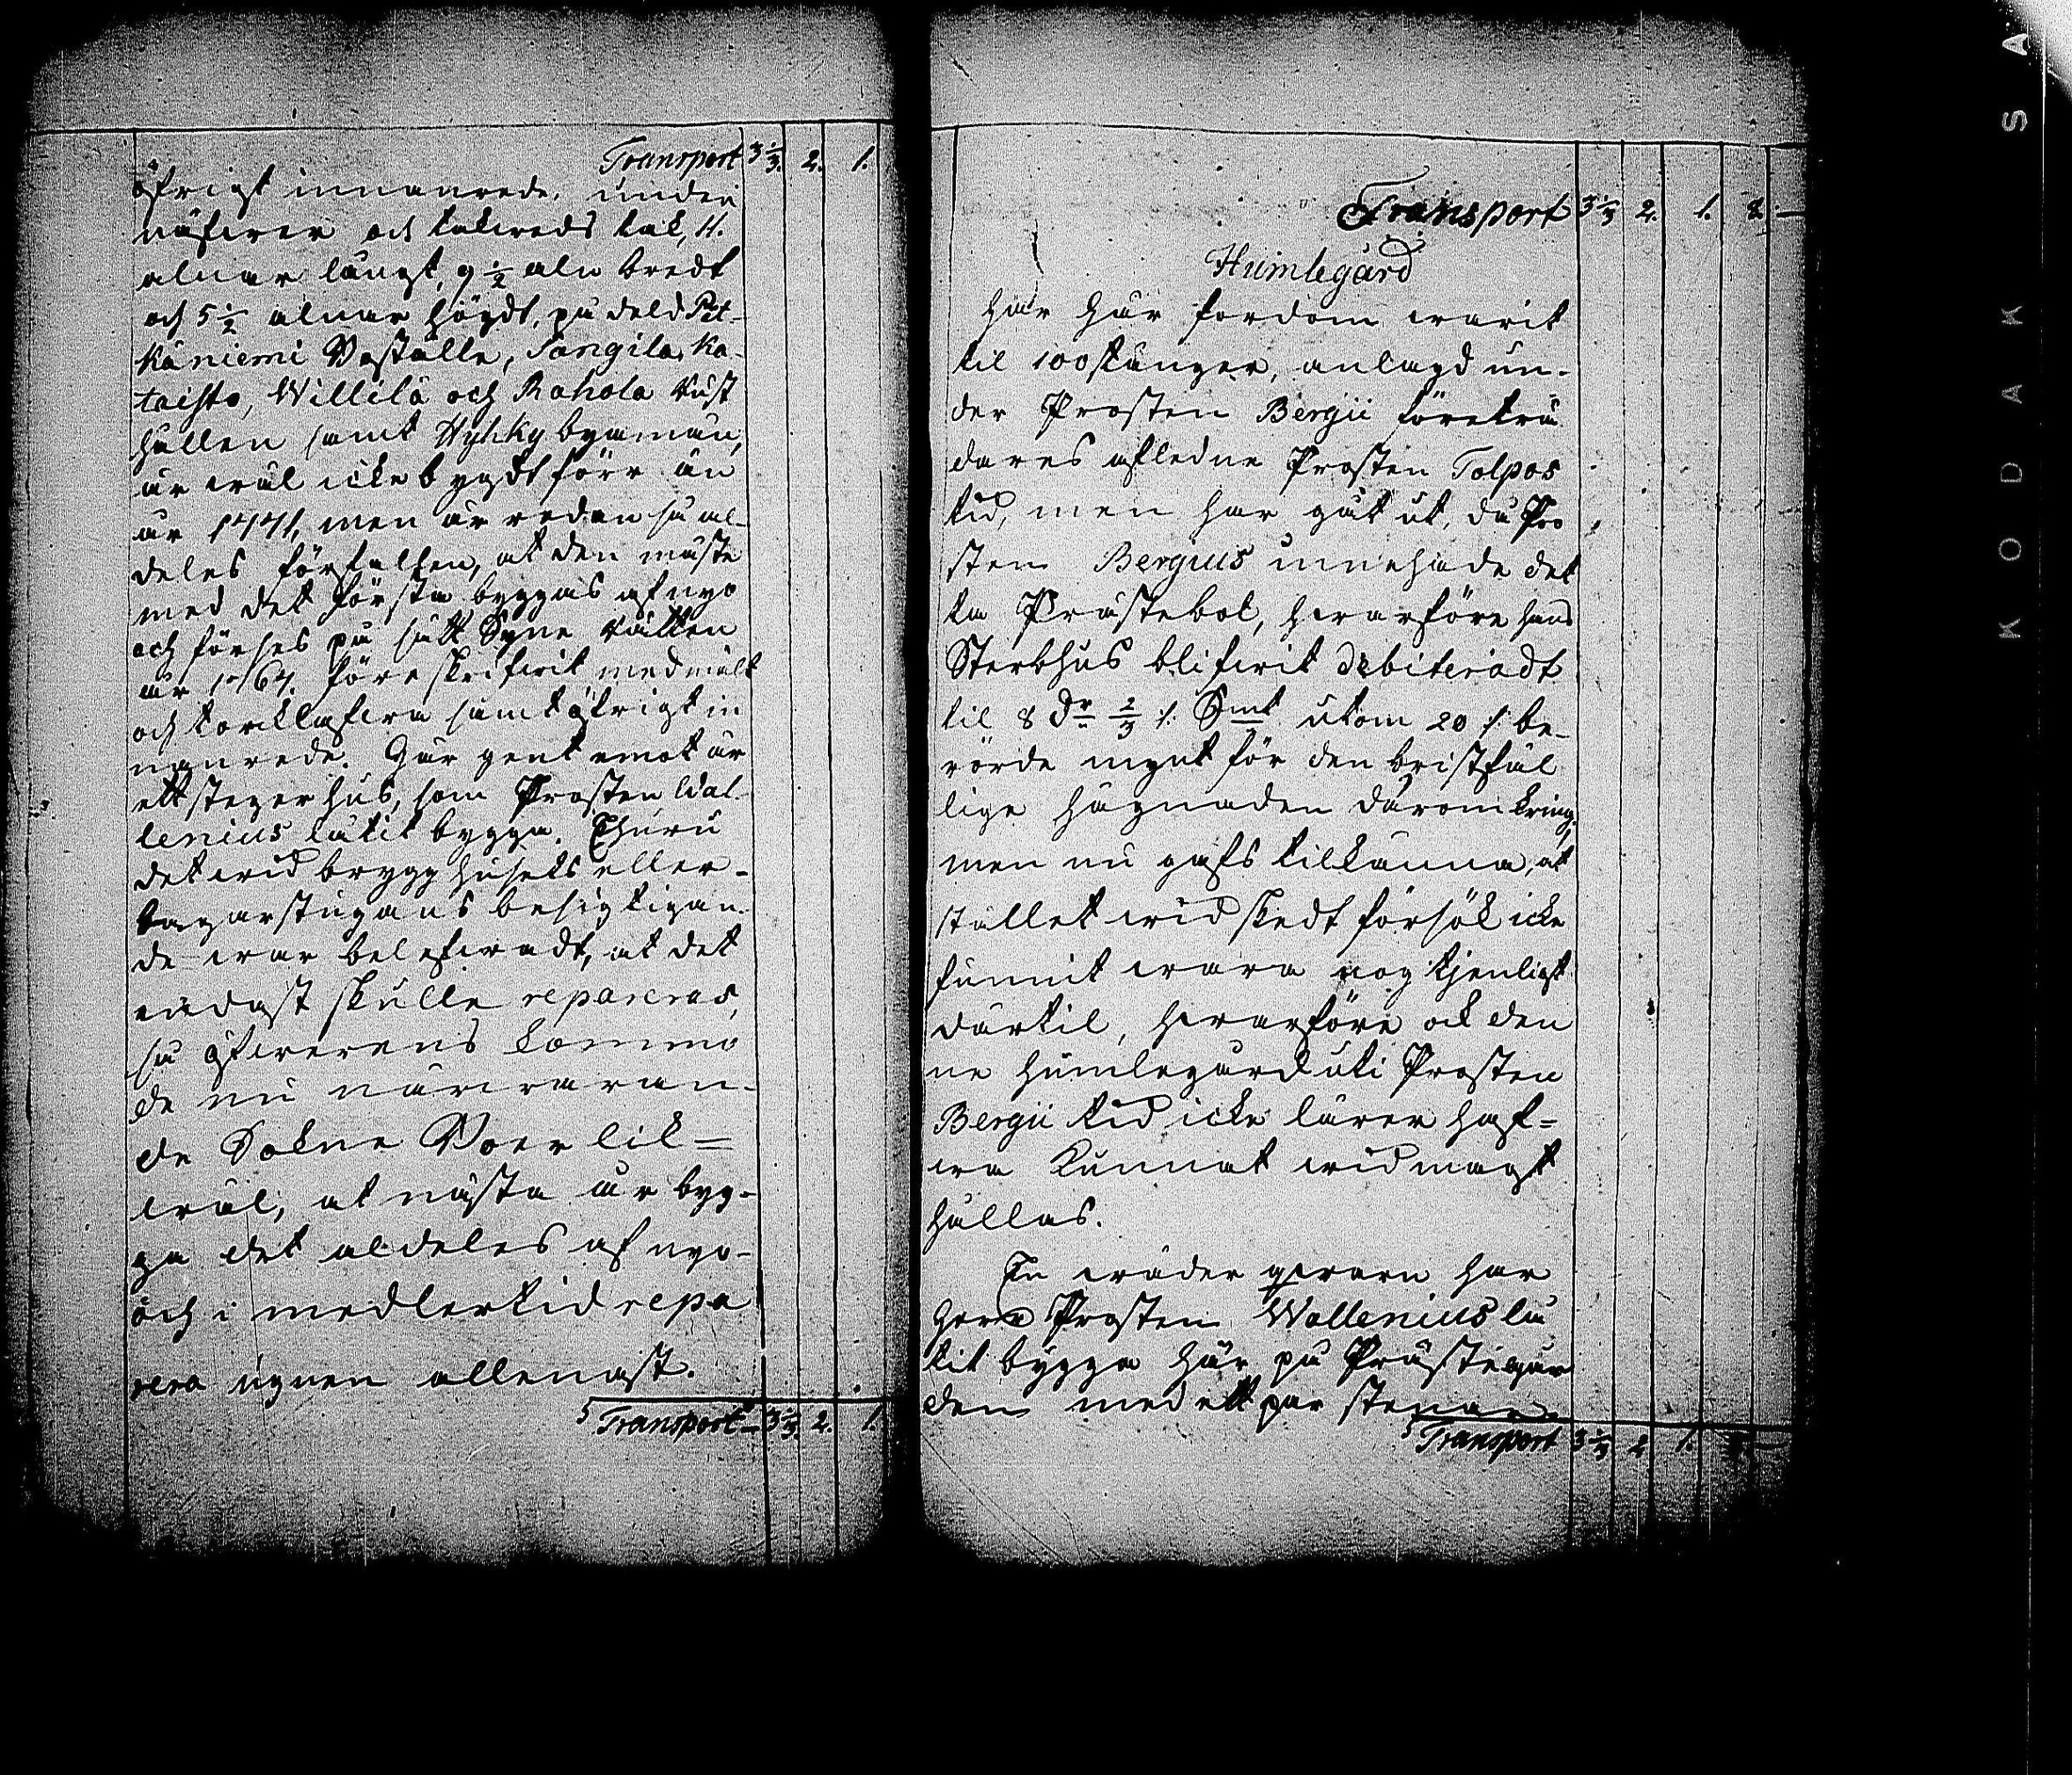 Transport 3 1/3. 2. 1.
öfrigt innanrede, under
näfwer och takweds tak, 11.
alnar långt, 9 1/2 aln bredt
och 5 1/2 alnar högdt, på deld Pit-
käniemi Boställe, Sangila, Ka-
taisto, Willilä och Rahola Rust
hållen samt Hyhky byamän,
är wäl icke bygdt förr än
år 1771, men är redan så al-
deles förfallen, at den måste
med det första byggas af nyo
och förses på sätt Syne Rätten
år 1767. föreskrifwit med mält
och torcklafwa samt öfrigt in
nanrede. Här gent emot är
ett stegerhus, som Prosten Wal-
lenius låtit bygga. Ehuru
det wid brygghusets eller
bagarstugans besigtigan-
de war belefwadt, at det
endast skulle repareras,
så öfwerens kommo
de nu närwaran-
de Sokne Boer lik=
wäl, at nästa år byg-
ga det aldeles af nyo
och i medlertid repa
rera ugnen allenast.
Transport 3 1/3. 2. 1.
Transport 3 1/3 2. 1. 8. —
Humlegård
här har fordom warit
til 100 stänger, anlagd un-
der Prosten Bergii företrä
dares afledne Prosten Tolpos
tid, men har gåt ut, då Pro
sten Bergius innehade det
ta Prästebol, hwarföre hans
Sterbhus blifwit debiteradt
til 8 Dr 2/3 /: Smt utom 20 /: be-
rörde mynt för den bristfäl
lige hägnaden däromkring,
men nu gafs tilkänna, at
stället wid skedt försök icke
funnit wara nog tjenligt
därtil, hwarföre ock den
ne humlegård uti Prosten
Bergii tid icke lärer haf=
wa kunnat wid magt
hållas.
En wäder qwarn har
Herr Prosten Wallenius lå
tit bygga här på Prästegår
den med ett par stenar
Transport 3 1/3 2 1.